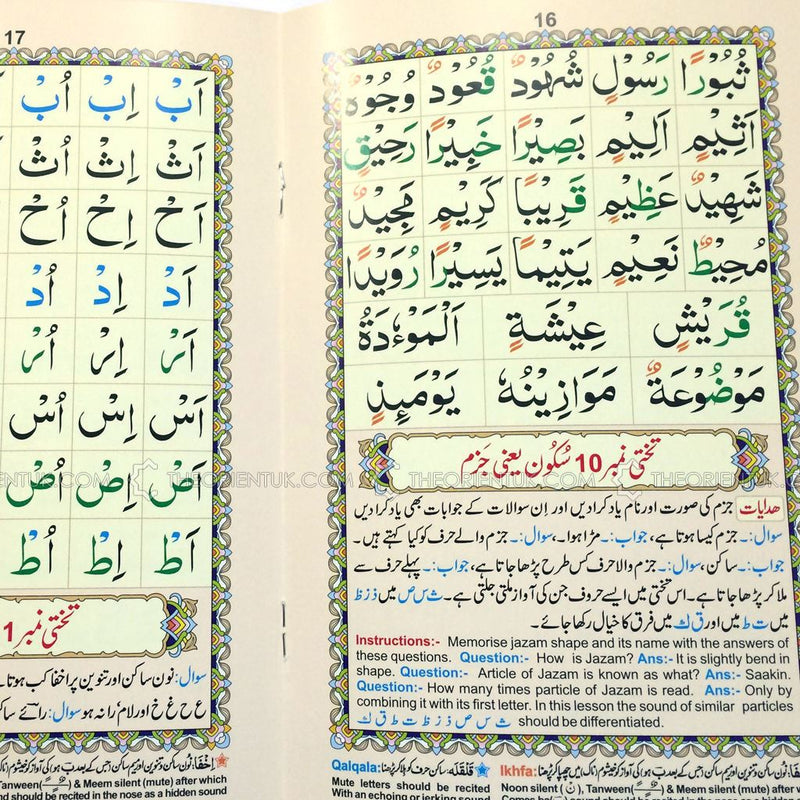 16
ثُبُوْرًا رَسُوْلٍ شُهُوْدٌ قُعُوْدٌ وُجُوْهٌ
اَثِيْمٍ اَلِيْمٍ بَصِيْرًا خَبِيْرًا رَحِيْقٍ
شَهِيْدٌ عَظِيْمٍ قَرِيْبًا كَرِيْمٍ مَجِيْدٌ
مُحِيْطٌ نَعِيْمٍ يَتِيْمًا يَسِيْرًا رُوَيْدًا
قُرَيْشٍ عِيْشَةٍ اَلْمَوْءٗدَةُ
مَوْضُوْعَةٌ مَوَازِيْنُهٗ يَوْمَئِذٍ
تختی نمبر 10 سُکُون یعنی جَزم
ھدایات جزم کی صورت اور نام یاد کرادیں اور اِن سوالات کے جوابات بھی یاد کرادیں
سوال:۔ جزم کیسا ہوتا ہے، جواب:۔ مڑا ہوا۔ سوال:۔ جزم والے حرف کو کیا کہتے ہیں۔
جواب:۔ ساکن، سوال:۔ جزم والا حرف کس طرح پڑھا جاتا ہے، جواب:۔ پہلے حرف سے
ملا کر پڑھا جاتا ہے۔ اس تختی میں ایسے حروف جن کی آواز ملتی جلتی ہے۔ ث س ص میں ذ ز ظ
میں ت ط میں اور ق ك میں فرق کا خیال رکھا جائے۔
Instructions:- Memorise jazam shape and its name with the answers of
these questions. Question:- How is Jazam? Ans:- It is slightly bend in
shape. Question:- Article of Jazam is known as what? Ans:- Saakin.
Question:- How many times particle of Jazam is read. Ans:- Only by
combining it with its first letter. In this lesson the sound of similar particles
ث س ص ذ ز ظ ت ط ق ك should be differentiated.
Qalqala: قلقلہ: ساکن حرف کو ہلا کر پڑھنا
Mute letters should be recited
With an echoing or jerking sound
Ikhfa:
Noon silent (نْ), Tanween & Meem silent (mute) after
17
اَبْ اِبْ اُبْ
اَثْ اِثْ اُثْ
اَحْ اِحْ اُحْ
اَدْ اِدْ اُدْ
اَرْ اِرْ اُرْ
اَسْ اِسْ اُسْ
اَصْ اِصْ اُصْ
اَطْ اِطْ اُطْ
تختی نمبر 1
سوال: نون ساکن اور تنوین پر اخفا کب ہوتا
ع ح غ خ اور لام را نہ ہو سوال: رائے ساکن
Tanween & Meem Silent (mute) after which
should be recited in the nose as a hidden sound
THEORIENTUK.COM THEORIENTUK.COM THEORIENTUK.COM